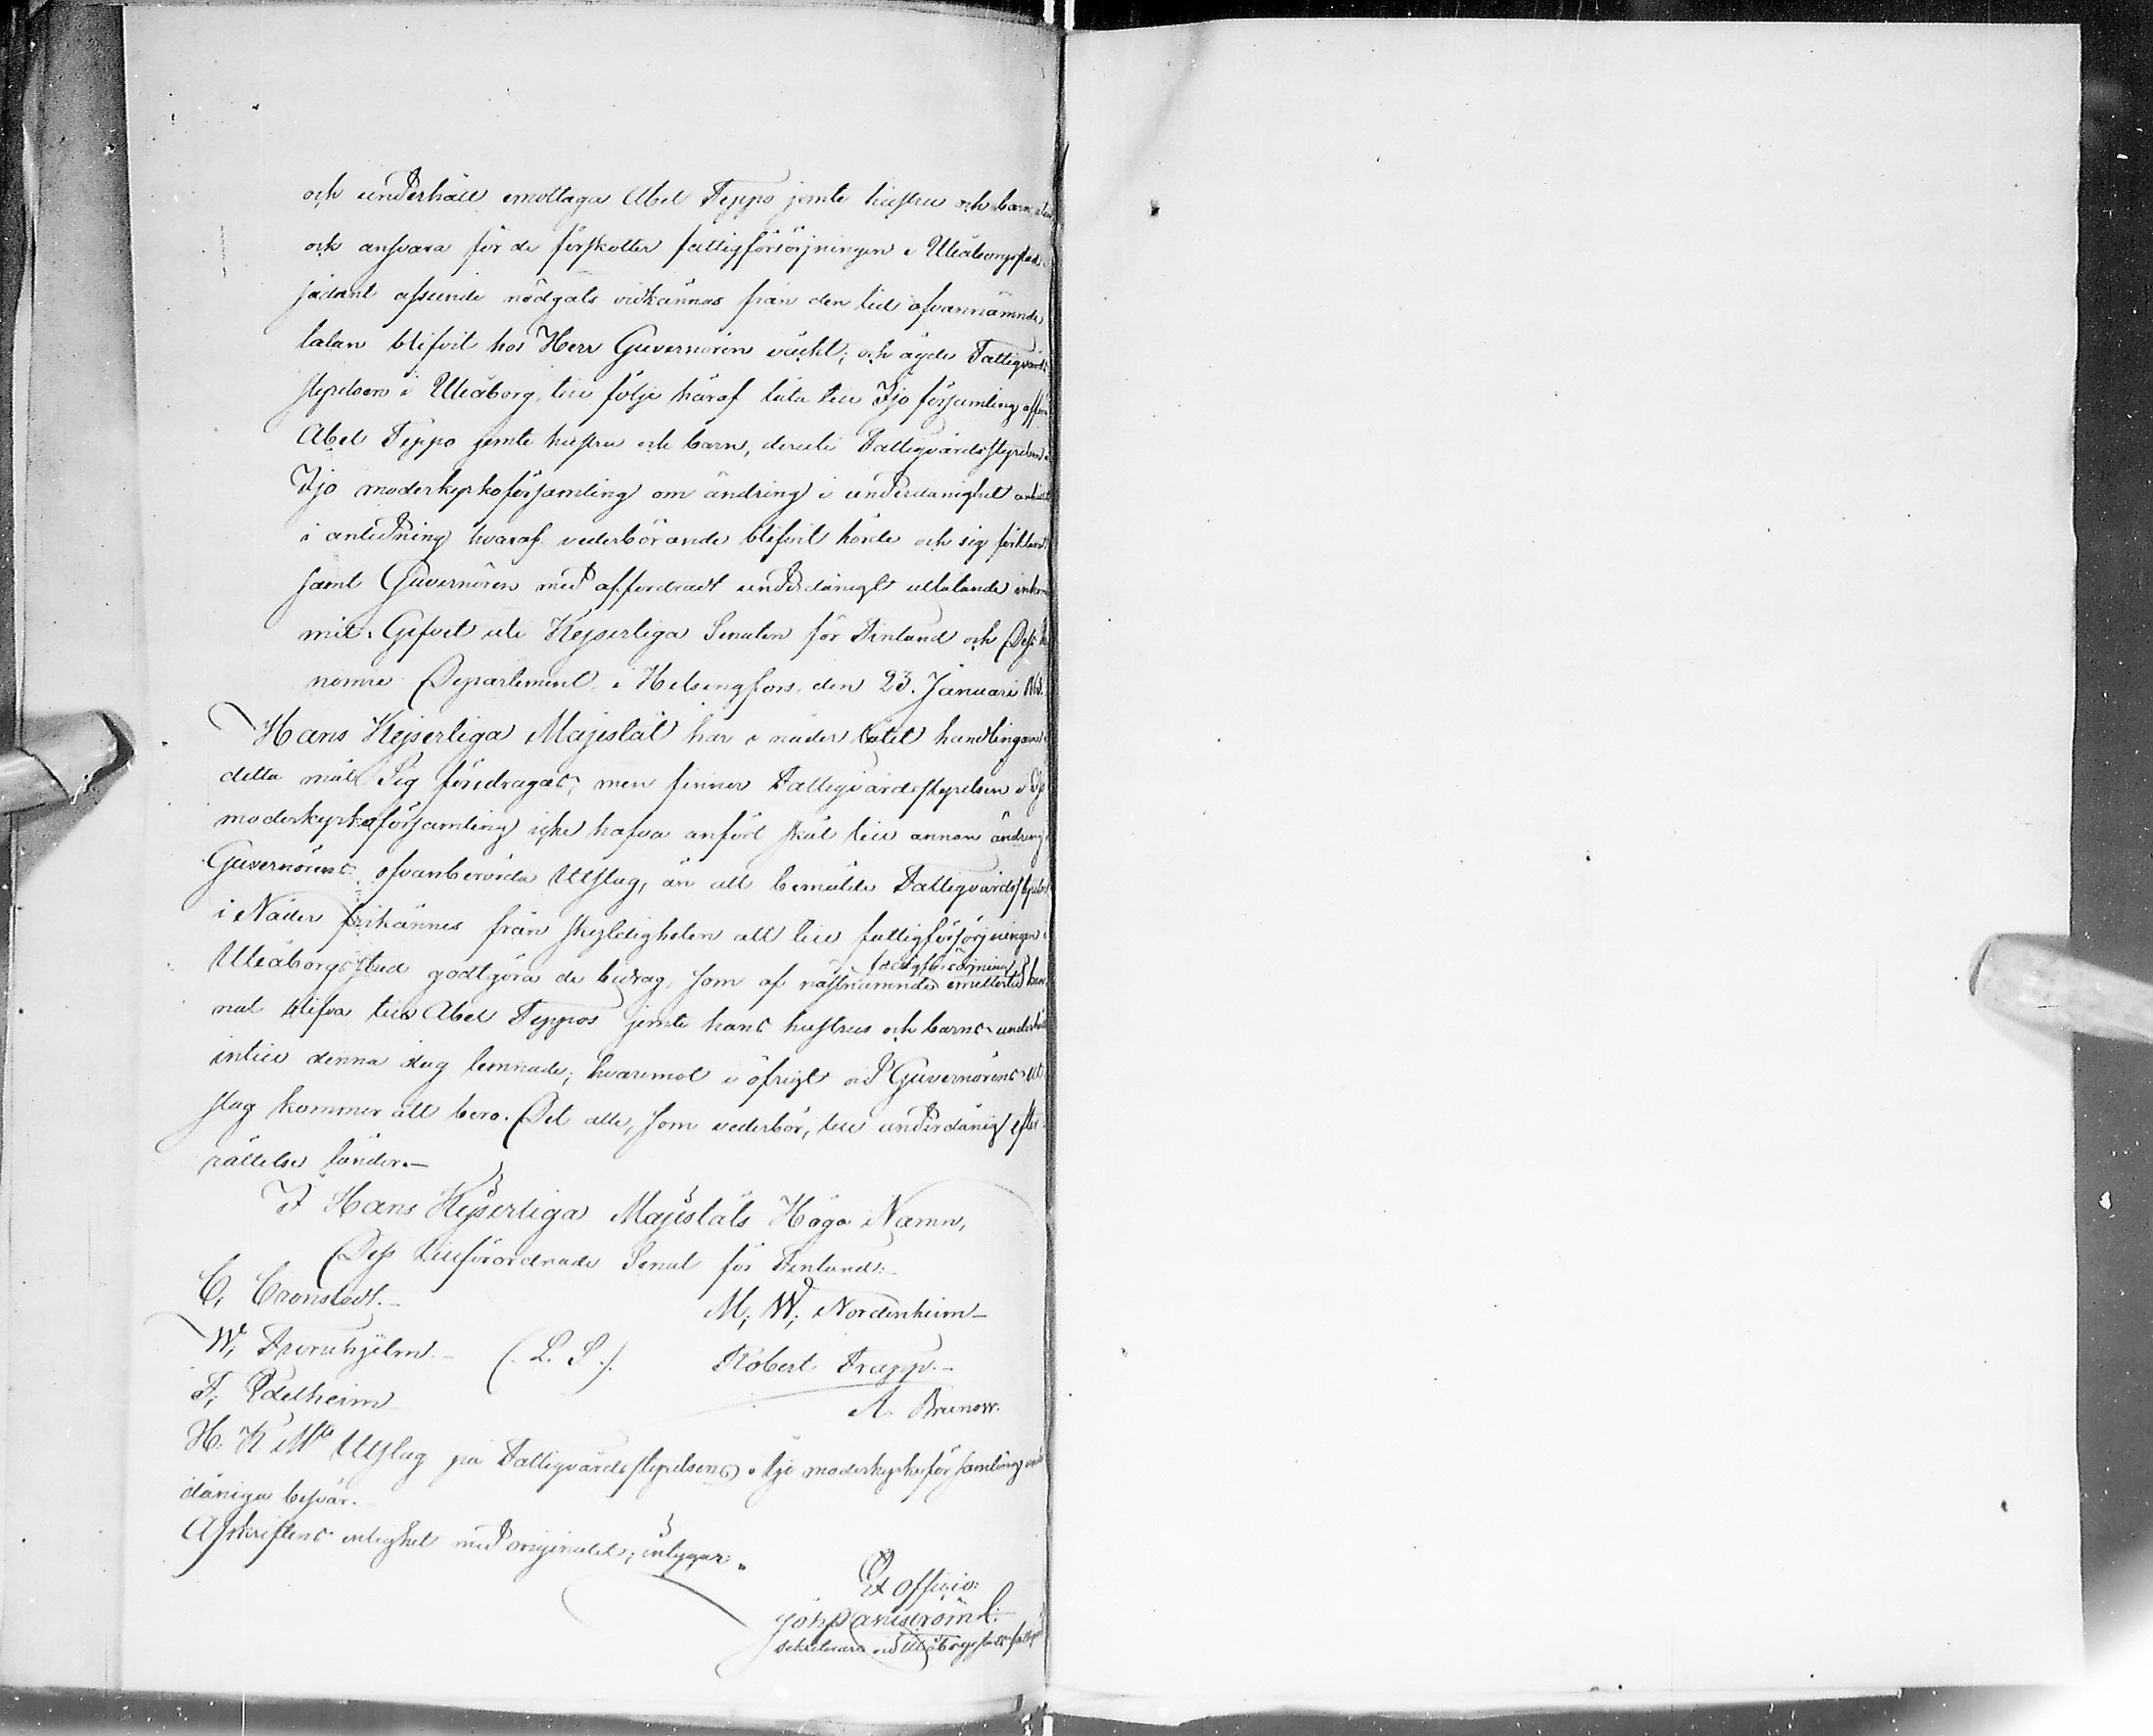 och underhåll emottaga Abel Teppo jemte hustru och barn
och ansvara för de förskotter fattigförsörjningen i Uleåborgs stad
sådant afseende nödgats vidkännas från den tid ofvannämnde
talan blifvit hos Herr Guvernören väckt; och ägde Fattigvårds-
styrelsen i Uleåborg, till följe häraf låta till Ijo församling
Abel Teppo jemte hustru och barn, deruti Fattigvårdsstyrelsen i
Ijo moderkyrkoförsamling om ändring i underdånighet
i anledning hvaraf vederbörande blifvit hörde och sig förklarat
samt Guvernören med affordradt underdånigt utlåtande inkom-
mit. Gifvet uti Kejserliga Senaten för Finland och Dess
nomie Departement, i Helsingfors, den 23. Januari
Hans Kejserliga Majestät har i nåder låtit handlingarne i
detta mål Sig föredragas; men finner Fattigvårdsstyrelsen i Ijo
moderkyrkoförsamling icke hafva anfört skäl till annan ändring i
Guvernörens ofvanberörda Utslag, än att bemälde Fattigvårdsstyrelse
i Nåder frikännes från skyldigheten att till fattigförsörjningen i
Uleåborgs stad godtgöra de bidrag, som af nästnämnde fattigförsörjning emellertid kun-
nat blifva till Abel Teppos jemte hans hustrus och barns underhåll
intill denna dag lemnade; hvaremot i öfrigt vid Guvernörens Ut-
slag kommer att bero. Det alle, som vederbör, till underdånig efter-
rättelse länder.—
I Hans Kejserliga Majestäts Höga Namn,
Dess tillförordnade Senat för Finland:
C, Cronstedt.— M, W, Nordenheim—
W, Furuhjelm.— (L. S.) Robert Trapp.—
F, Edelheim A. Brunow.
H. K Mts Utslag på Fattigvårdsstyrelsens i Ijo moderkyrkoförsamling under-
dåniga besvär.
Afskriftens enlighet med originalet; intygar.
Ex officio: